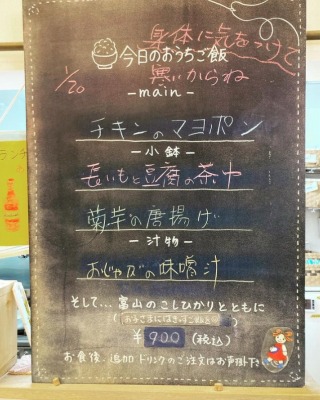 身体に気をつけて
今日のおうちご飯
1/20
寒いからね
-main-
チキンのマヨポン
-小鉢-
長いもと豆腐の茶巾
菊芋の唐揚げ
-汁物-
おじゃがの味噌汁
そして... 富山のこしひかりとともに
¥900 (税込)
お食後、追加ドリンクのご注文はお声掛け下さい
ランチ